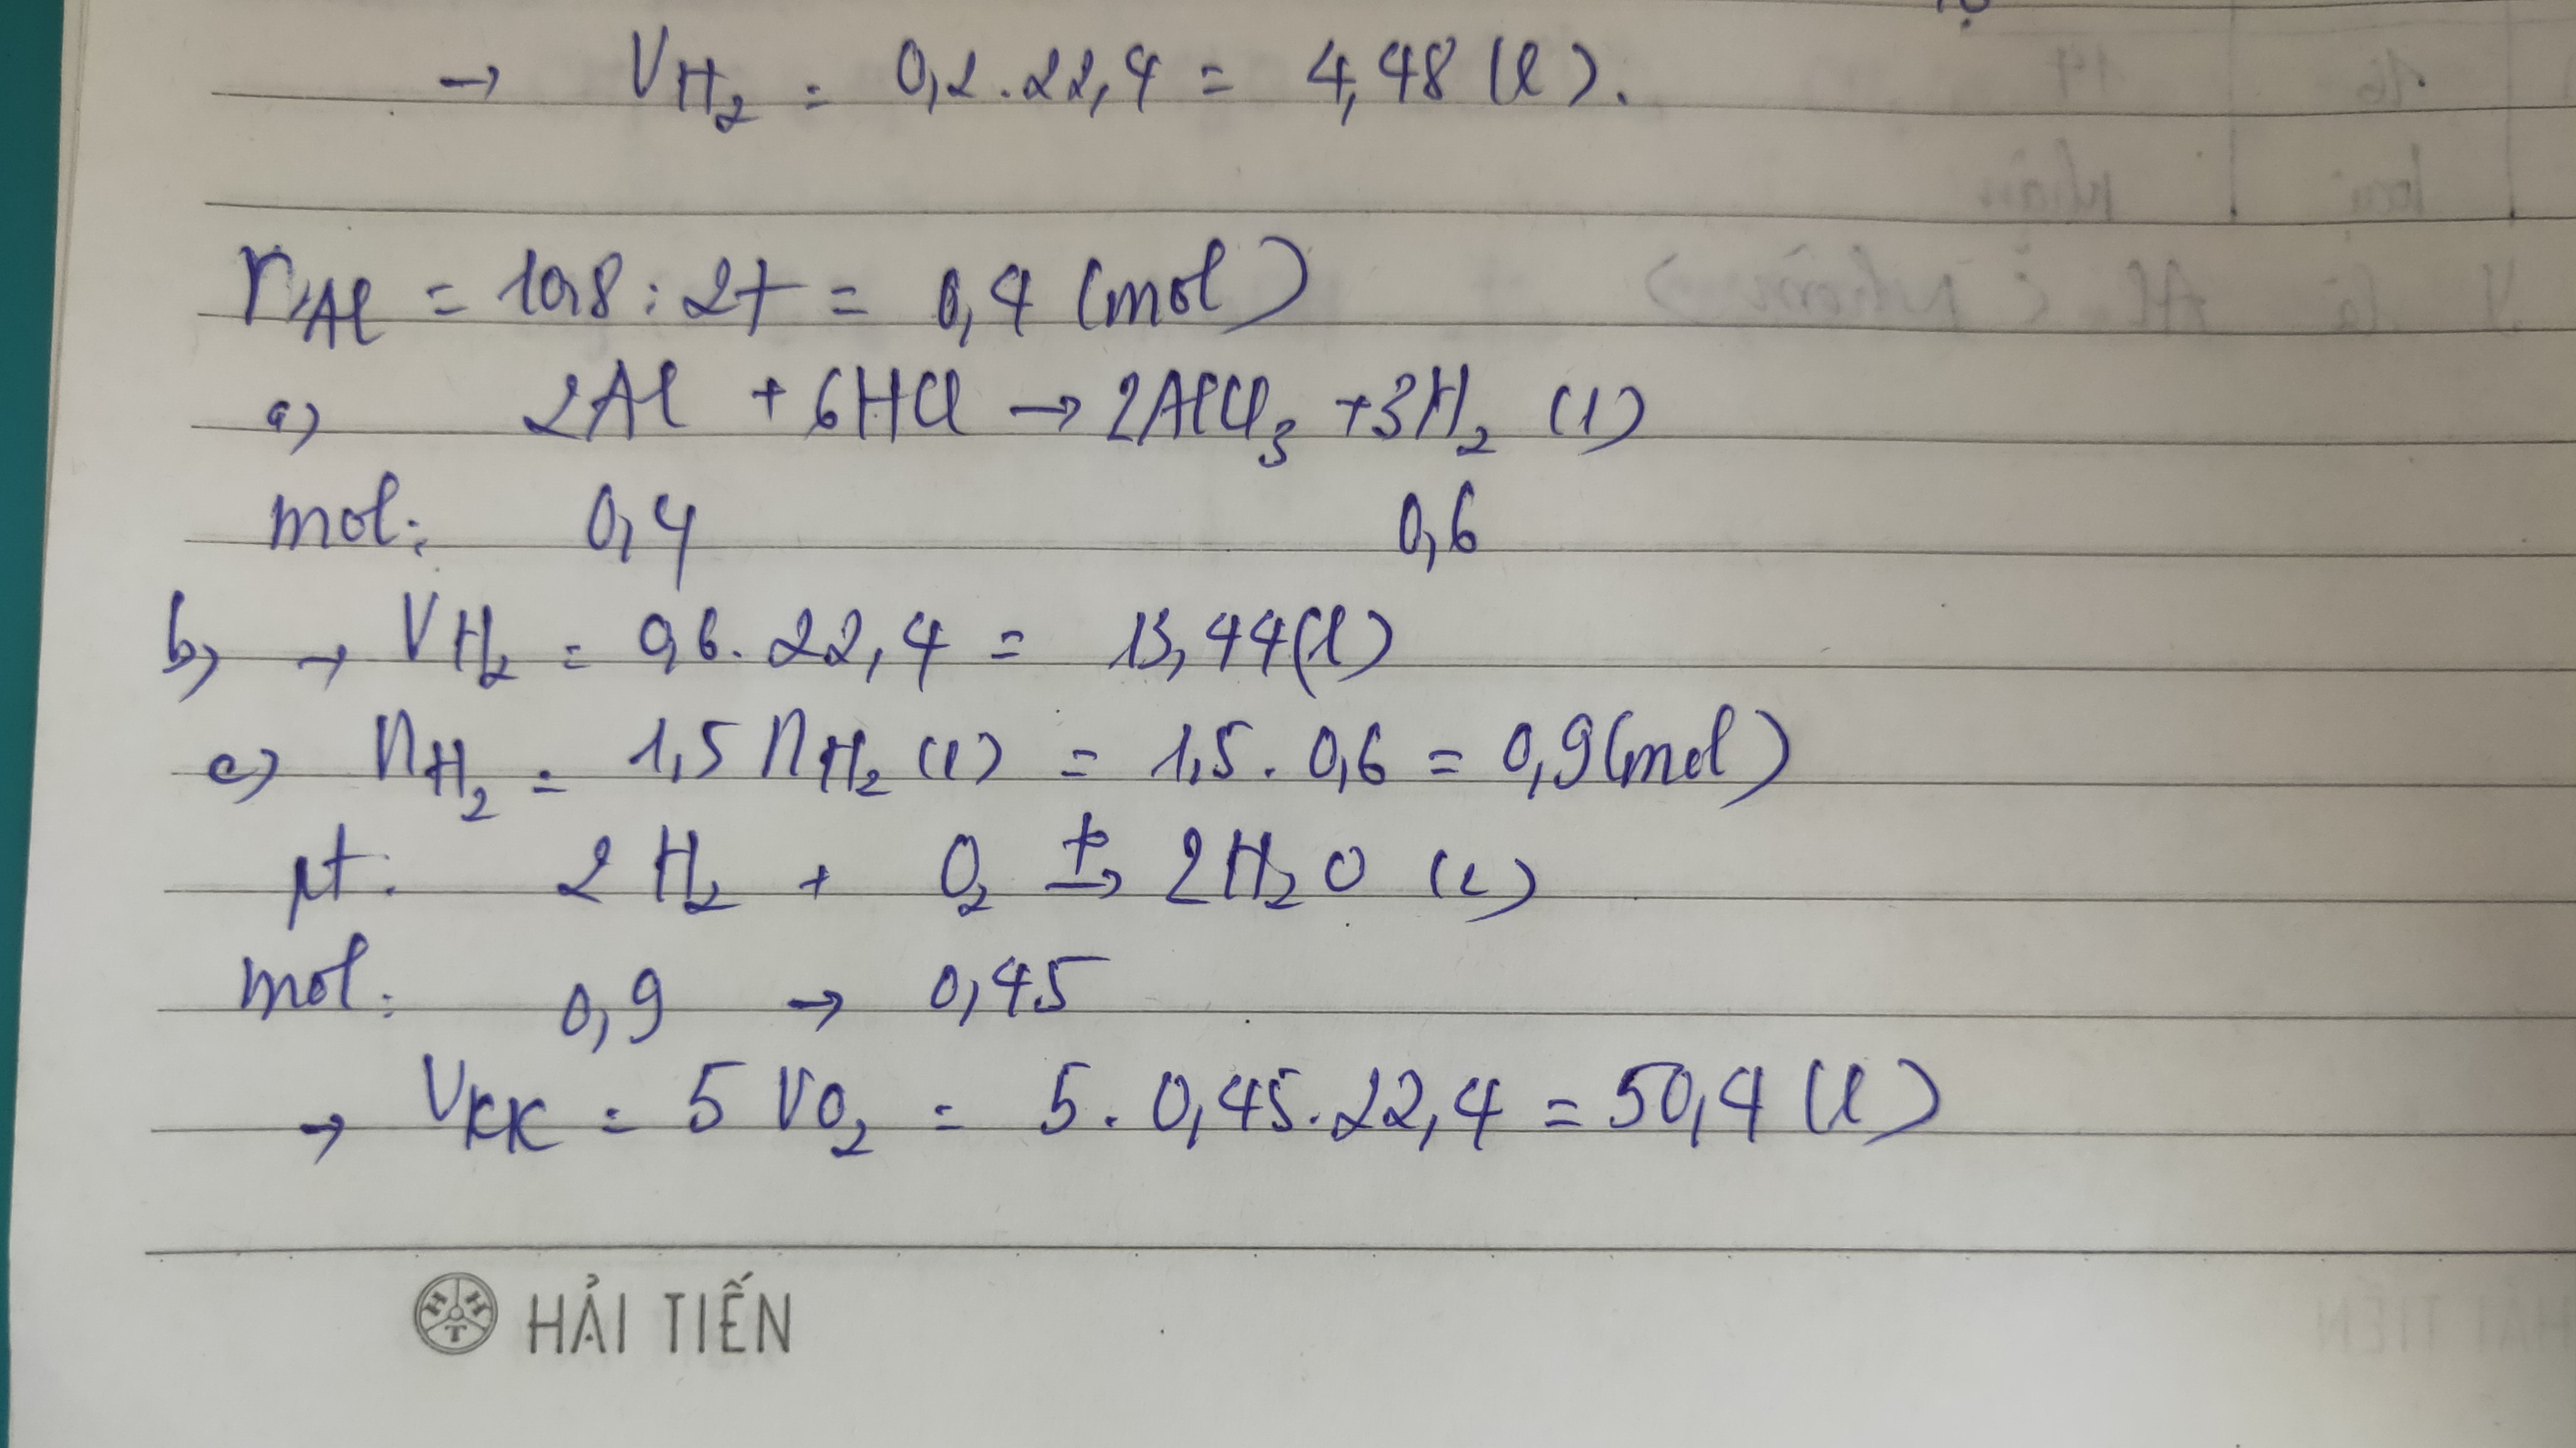 → V H₂ = 0,2.22,4 = 4,48 (l).
nAl = 10,8 : 27 = 0,4 (mol)
a) 2Al + 6HCl → 2AlCl₃ + 3H₂ (1)
mol: 0,4 0,6
b) → V H₂ = 0,6. 22,4 = 13,44(l)
c) nH₂ = 1,5 nH₂ (1) = 1,5. 0,6 = 0,9(mol)
pt: 2H₂ + O₂ t°→ 2H₂O (2)
mol: 0,9 → 0,45
→ VKK = 5 VO₂ = 5. 0,45.22,4 = 50,4 (l)
HẢI TIẾN